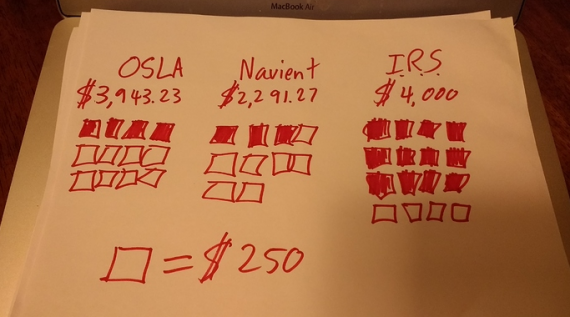 MacBook Air
OSLA Navient I.R.S
$3,943.23 $2,291.27 $4,000
= $250